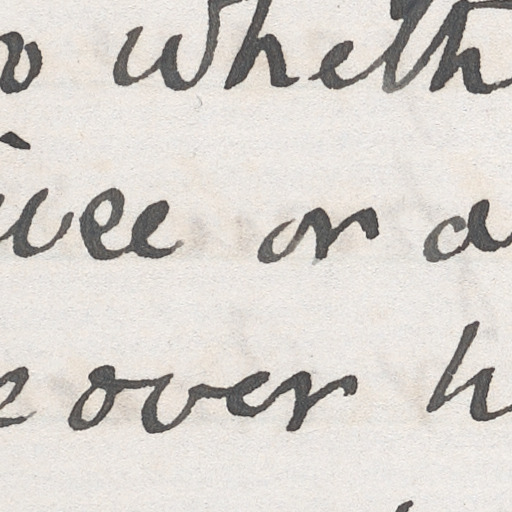 o wheth
ice or a
e over h